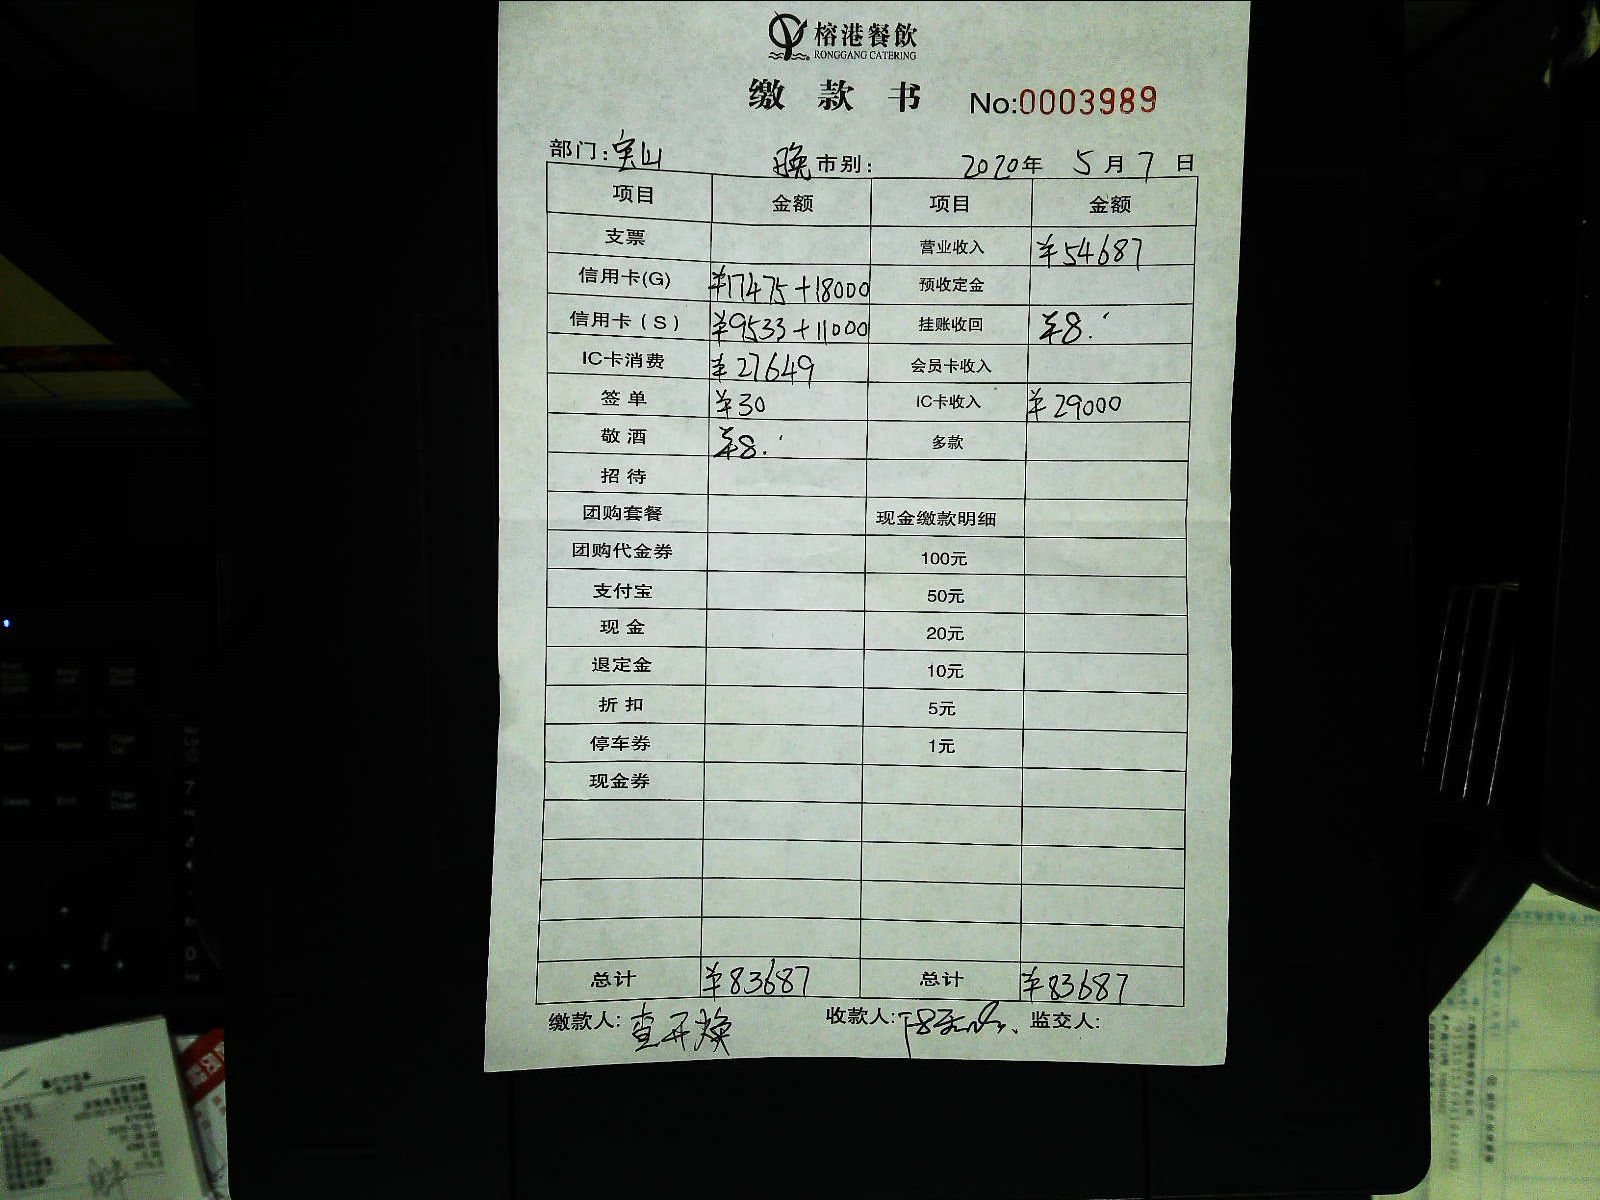 榕港餐飲
RONGGANG CATERING
缴款书 No:0003989
部门:宝山 晚市别: 2020年5月7日
项目 金额 项目 金额
支票 营业收入 ¥54687
信用卡(G) ¥17475+18000 预收定金
信用卡(S) ¥9533+11000 挂账收回 ¥8.
IC卡消费 ¥27649 会员卡收入
签单 ¥30 IC卡收入 ¥29000
敬酒 ¥8. 多款
招待
团购套餐 现金缴款明细
团购代金券 100元
支付宝 50元
现金 20元
退定金 10元
折扣 5元
停车券 1元
现金券
总计 ¥83687 总计 ¥83687
缴款人:查开焕 收款人: 监交人: